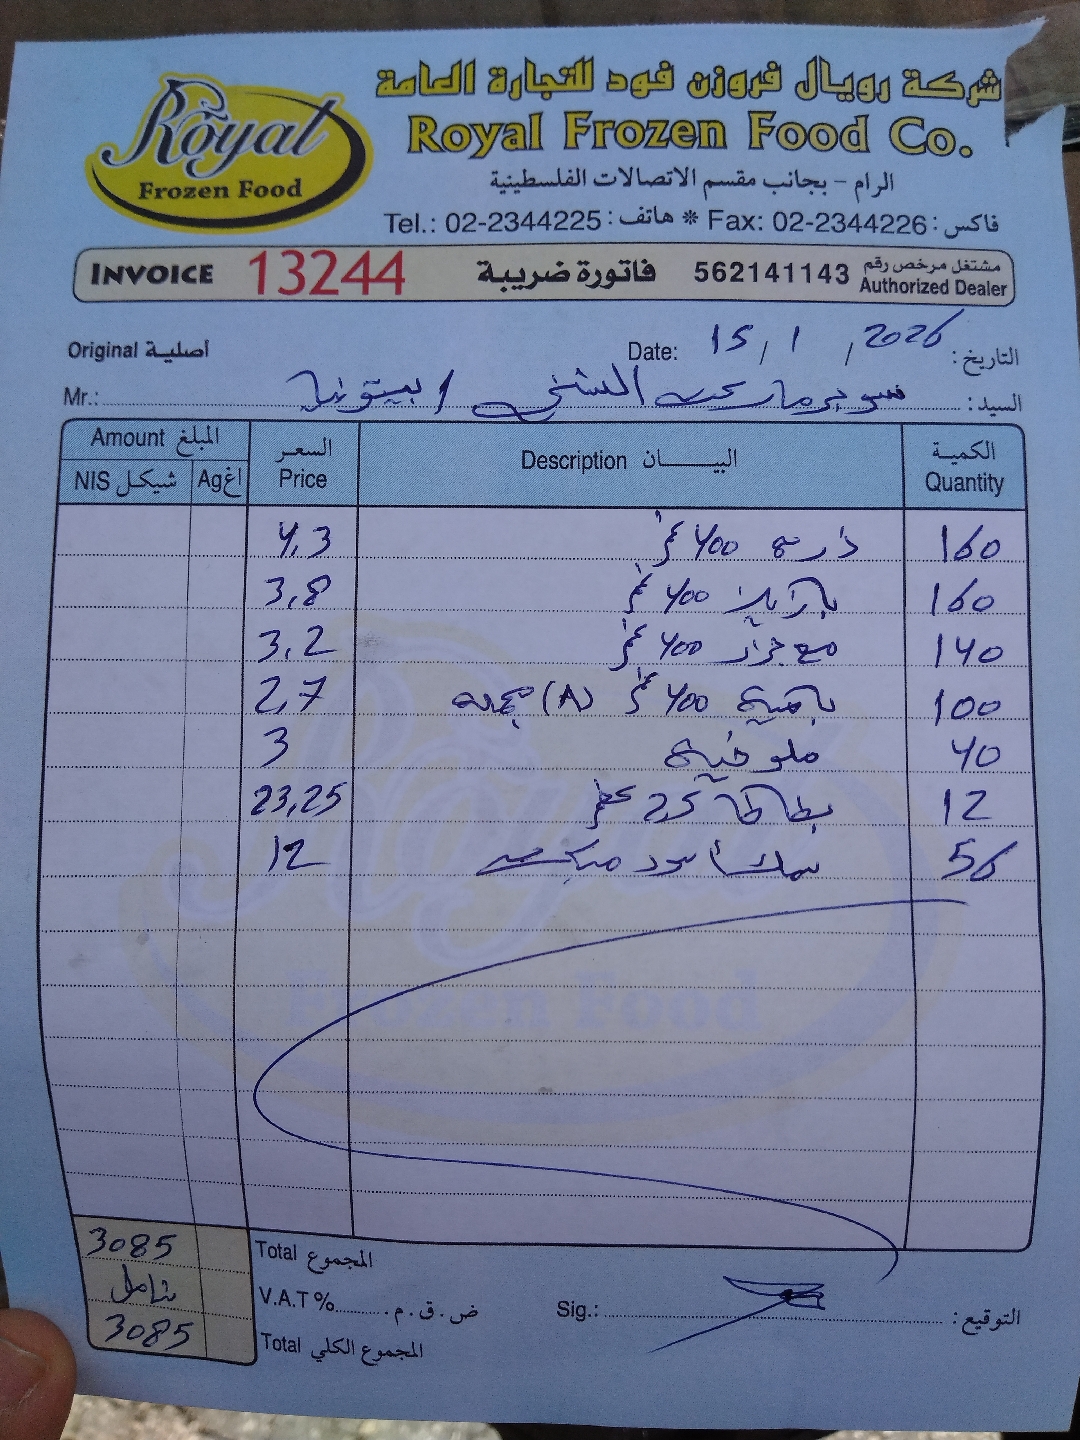 شركة رويال فروزن فود للتجارة العامة
Royal Frozen Food
Royal Frozen Food Co.
الرام - بجانب مقسم الاتصالات الفلسطينية
Tel.: 02-2344225 : هاتف * Fax: 02-2344226 : فاكس
INVOICE 13244 فاتورة ضريبة 562141143 مشتغل مرخص رقم Authorized Dealer
Original أصلية
Date: 15 / 1 / 2026 التاريخ:
Mr.: سوبرماركت الشني / بيتونيا السيد:
Amount المبلغ السعر Price Description البيان الكمية Quantity
NIS شيكل Ag اغ
4,3 ذرة 400 غم 160
3,8 بازيلا 400 غم 160
3,2 مع جزر 400 غم 140
2,7 بامية 400 غم (A) 100
3 ملوخية 40
23,25 بطاطا 2,5 12
12 سمك 56
3085 Total المجموع
شامل V.A.T % ض.ق.م.
3085 Total المجموع الكلي
Sig.: التوقيع: